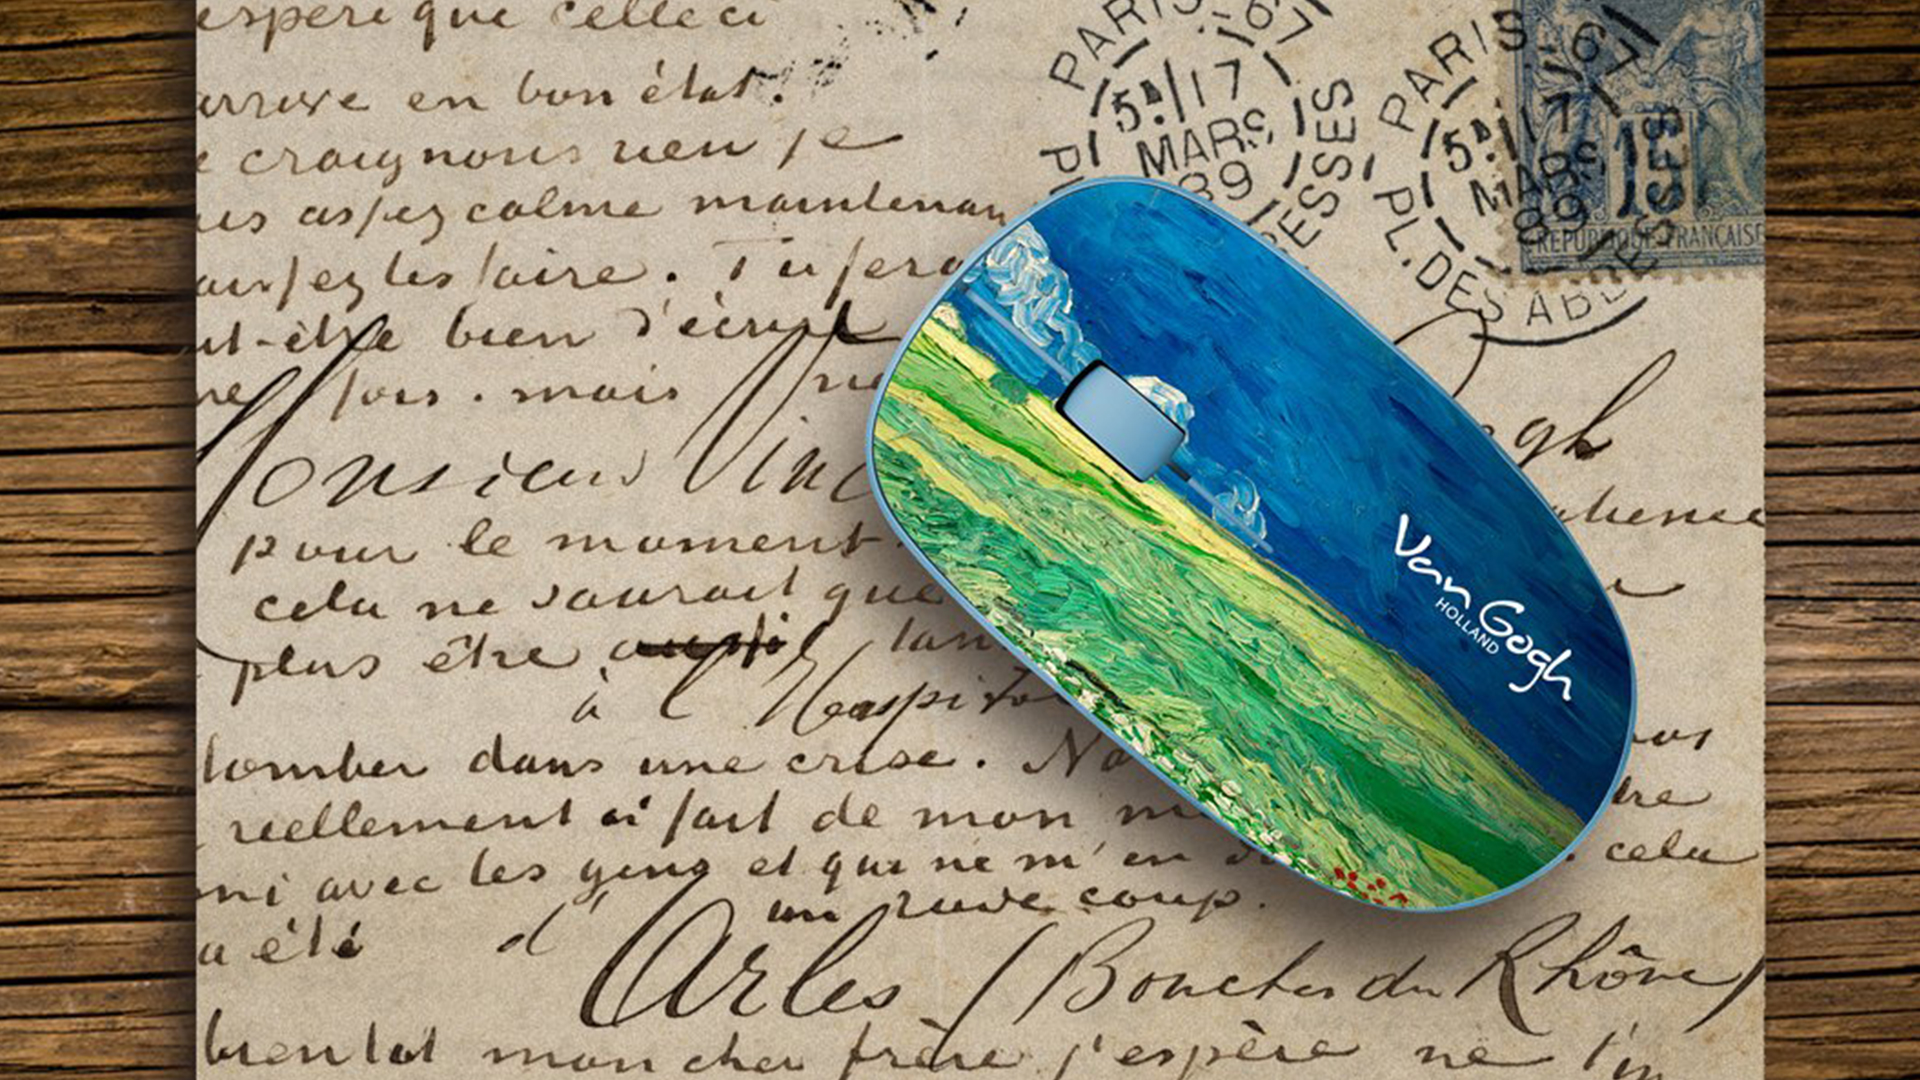 espère que celle ci
arrive en bon état.
craignons rien je
assez calme maintenan
les faire. Tu fera
ut-être bien d'écrire
fois. mais ne
Monsieur Vinc
gh
pour le moment
cela ne saurait que
plus être aussi
à l'Hospital
tomber dans une crise. No
reellement a fait de mon
mi avec les gens et qui ne m'en
cela
un rude coup.
a été
d'Arles (Bouches du Rhône)
bientot mon cher frère j'espère ne
PARIS-67
5E/17
MARS
89
ESSES
PARIS-67
5E/17
MARS
89
PL. DES ABBESSES
15
REPUBLIQUE FRANÇAISE
Van Gogh
HOLLAND